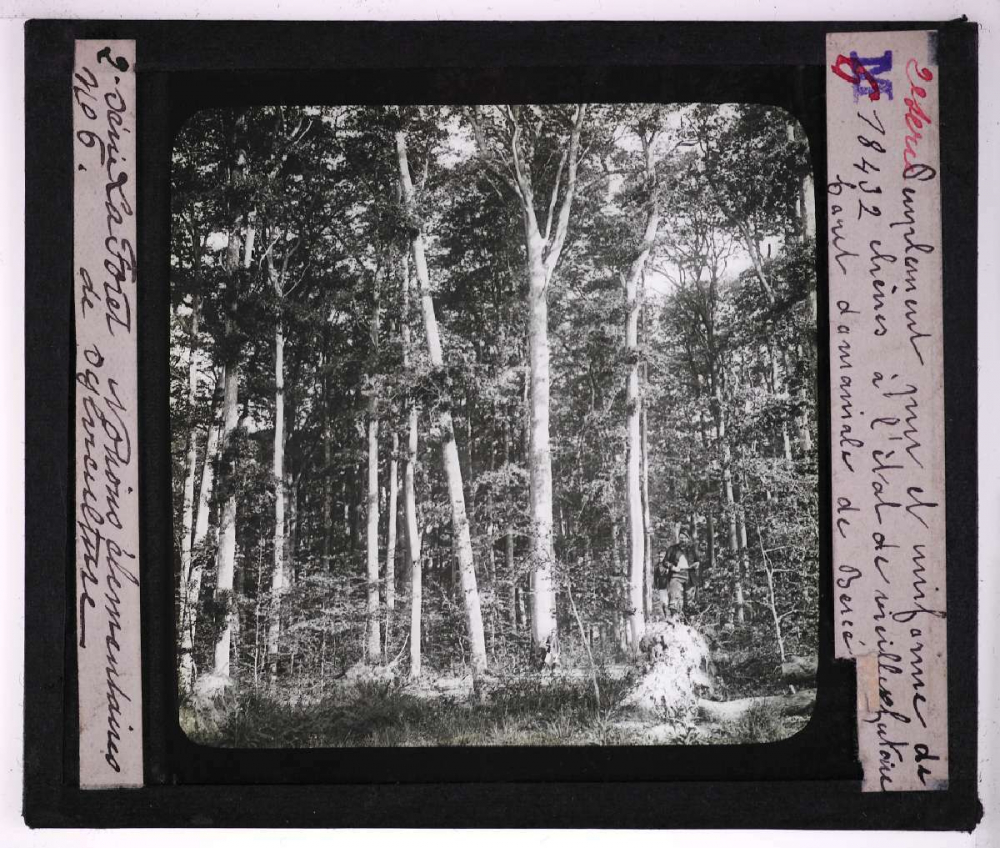 2. série La Forêt Notions élémentaires
No 6. de sylviculture
2e série Peuplement pur et uniforme de
M 18432 chênes à l'état de vieille futaie
Forêt domaniale de Bercé